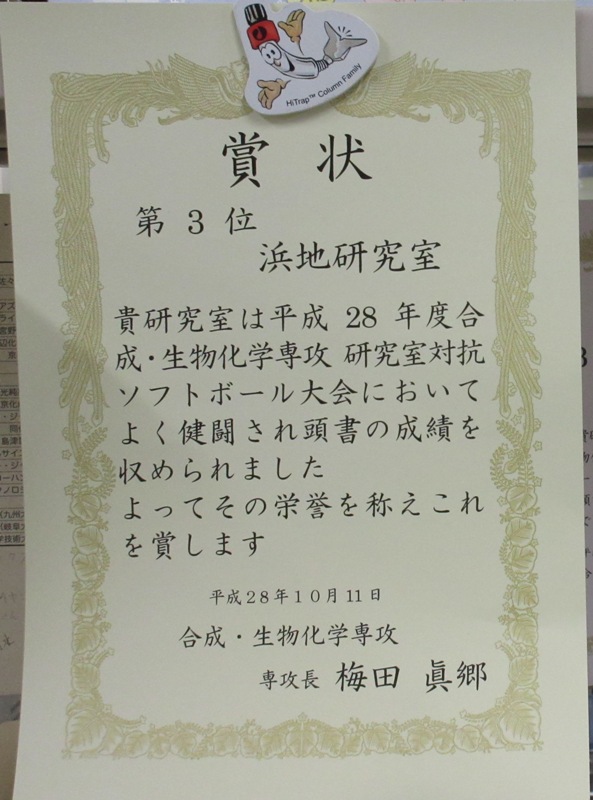 HiTrap™ Column Family
賞 状
第 3 位
浜地研究室
貴研究室は平成 28 年度合
成・生物化学専攻 研究室対抗
ソフトボール大会において
よく健闘され頭書の成績を
収められました
よってその栄誉を称えこれ
を賞します
平成28年10月11日
合成・生物化学専攻
専攻長 梅田 眞郷